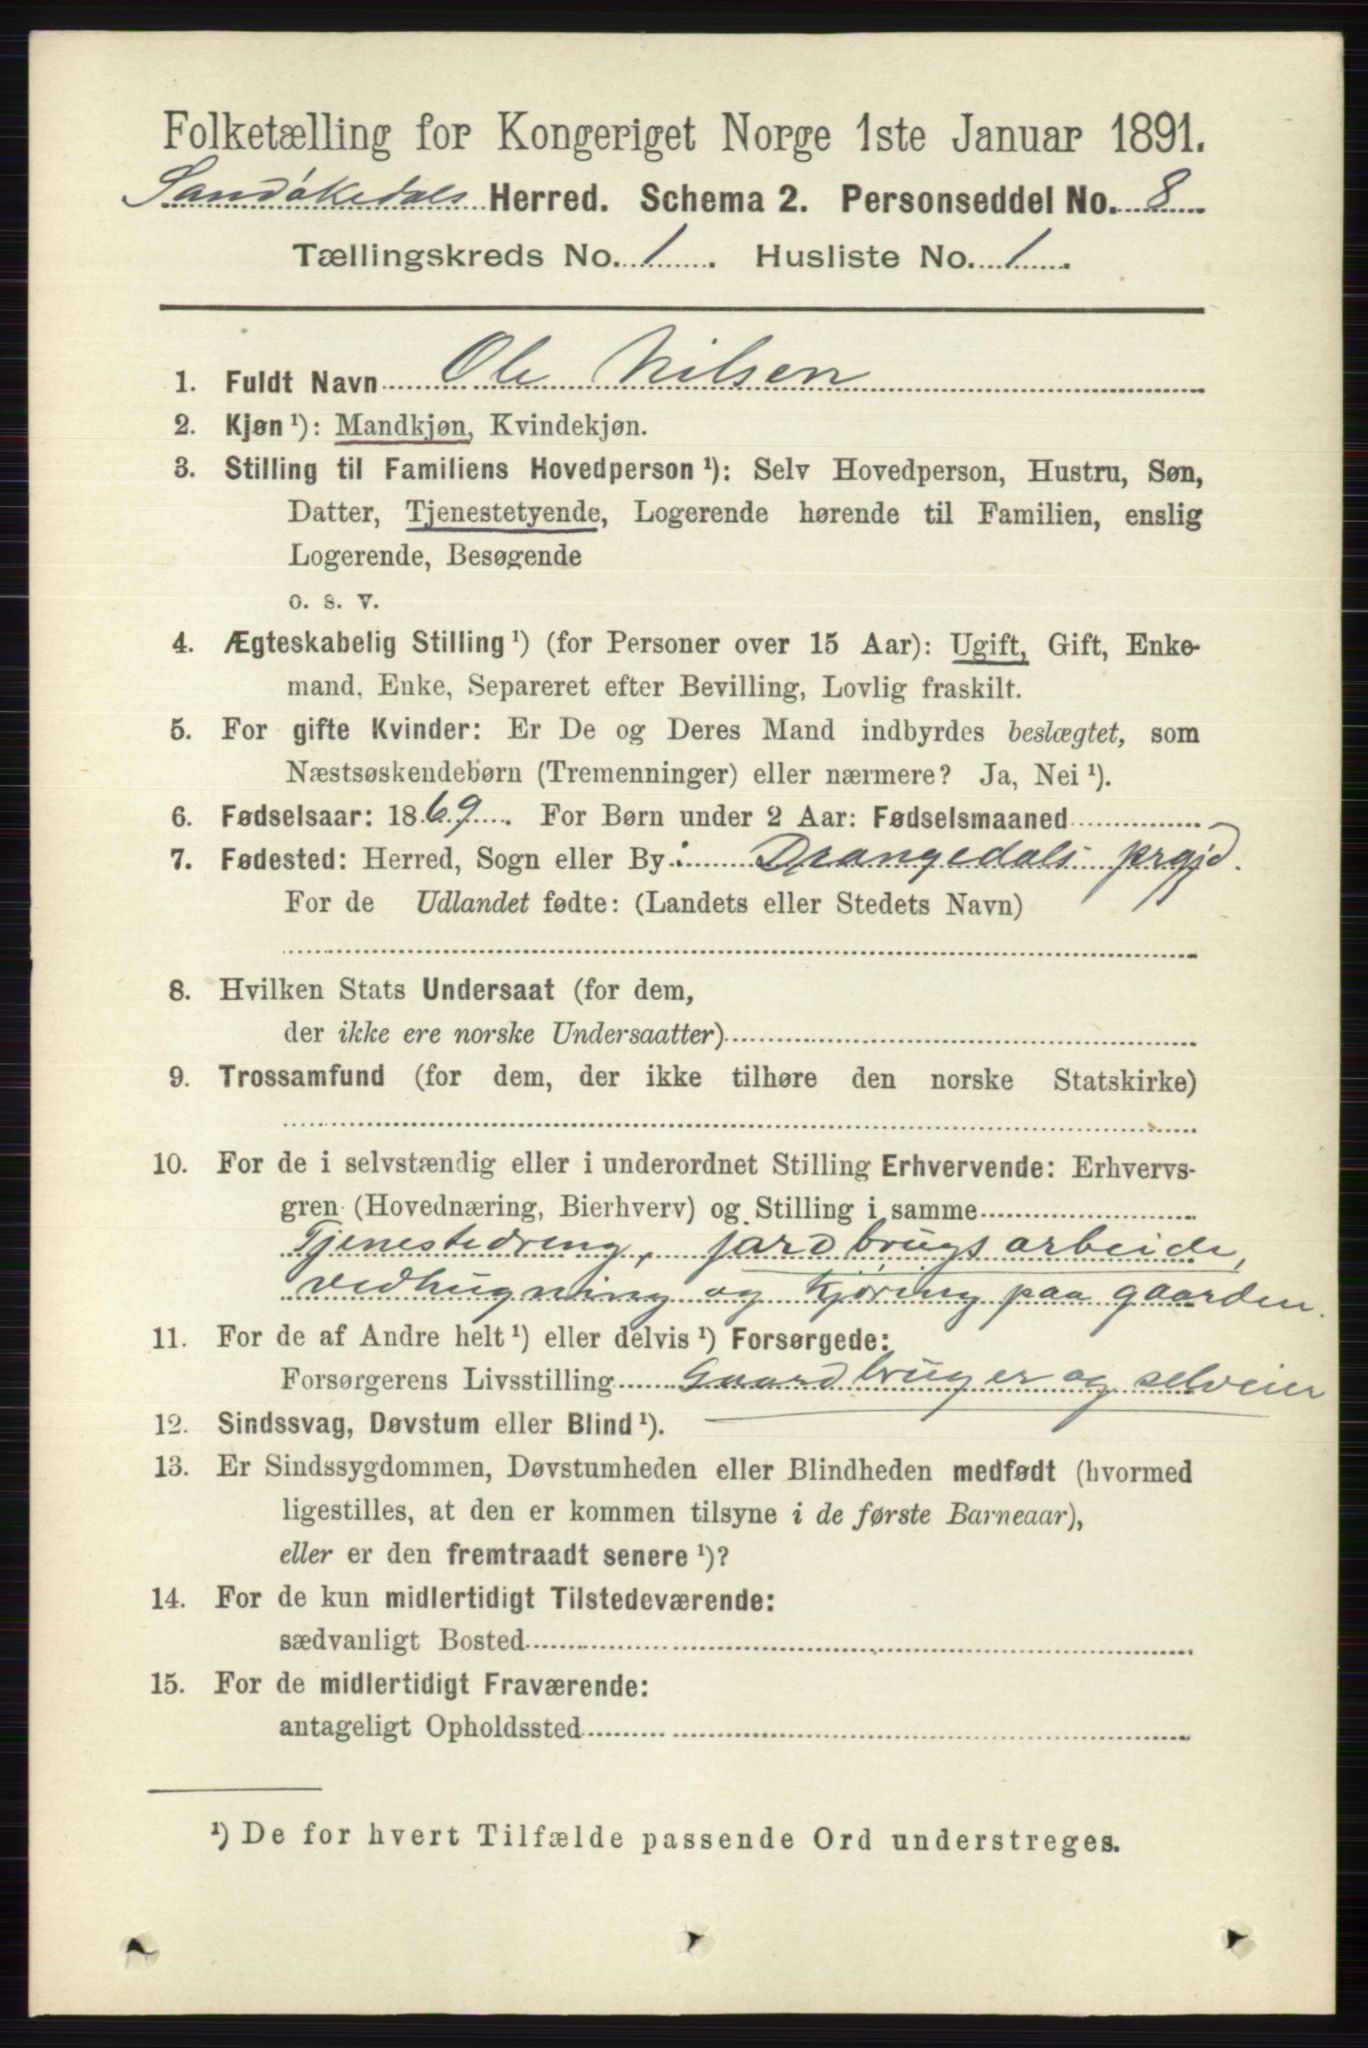 Folketælling for Kongeriget Norge 1ste Januar 1891.
Sandøkedals Herred. Schema 2. Personseddel No. 8
Tællingskreds No. 1. Husliste No. 1.
1. Fuldt Navn Ole Nilsen
2. Kjøn ¹): Mandkjøn, Kvindekjøn.
3. Stilling til Familiens Hovedperson ¹): Selv Hovedperson, Hustru, Søn,
Datter, Tjenestetyende, Logerende hørende til Familien, enslig
Logerende, Besøgende
o. s. v.
4. Ægteskabelig Stilling ¹) (for Personer over 15 Aar): Ugift, Gift, Enke-
mand, Enke, Separeret efter Bevilling, Lovlig fraskilt.
5. For gifte Kvinder: Er De og Deres Mand indbyrdes beslægtet, som
Næstsøskendebørn (Tremenninger) eller nærmere? Ja, Nei ¹).
6. Fødselsaar: 1869. For Børn under 2 Aar: Fødselsmaaned
7. Fødested: Herred, Sogn eller By i Drangedals prgjd.
For de Udlandet fødte: (Landets eller Stedets Navn)
8. Hvilken Stats Undersaat (for dem,
der ikke ere norske Undersaatter)
9. Trossamfund (for dem, der ikke tilhøre den norske Statskirke)
10. For de i selvstændig eller i underordnet Stilling Erhvervende: Erhvervs-
gren (Hovednæring, Bierhverv) og Stilling i samme
Tjenestedreng, jordbrugsarbeide,
vedhugning og kjøring paa gaarden.
11. For de af Andre helt ¹) eller delvis ¹) Forsørgede:
Forsørgerens Livsstilling Gaardbruger og selveier
12. Sindssvag, Døvstum eller Blind ¹).
13. Er Sindssygdommen, Døvstumheden eller Blindheden medfødt (hvormed
ligestilles, at den er kommen tilsyne i de første Barneaar),
eller er den fremtraadt senere ¹)?
14. For de kun midlertidigt Tilstedeværende:
sædvanligt Bosted
15. For de midlertidigt Fraværende:
antageligt Opholdssted
¹) De for hvert Tilfælde passende Ord understreges.